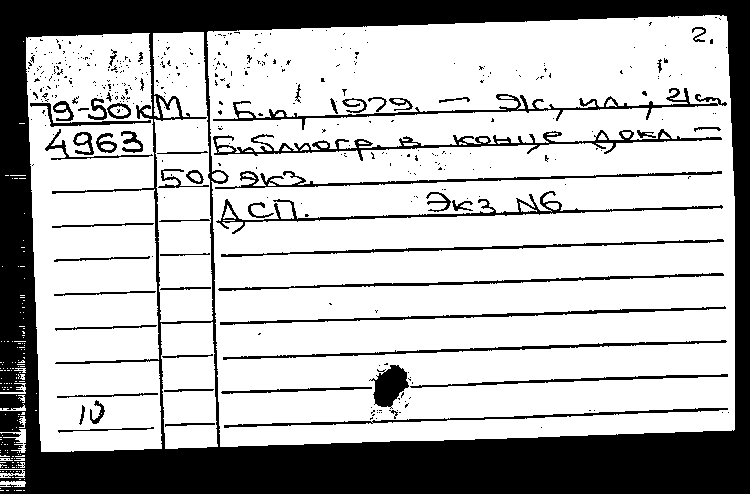 2.
79-50к М. : Б.и., 1979. — 91с., ил. ; 21 см.
4963 Библиогр. в конце докл. —
500 экз.
ДСП. Экз. N6.
10